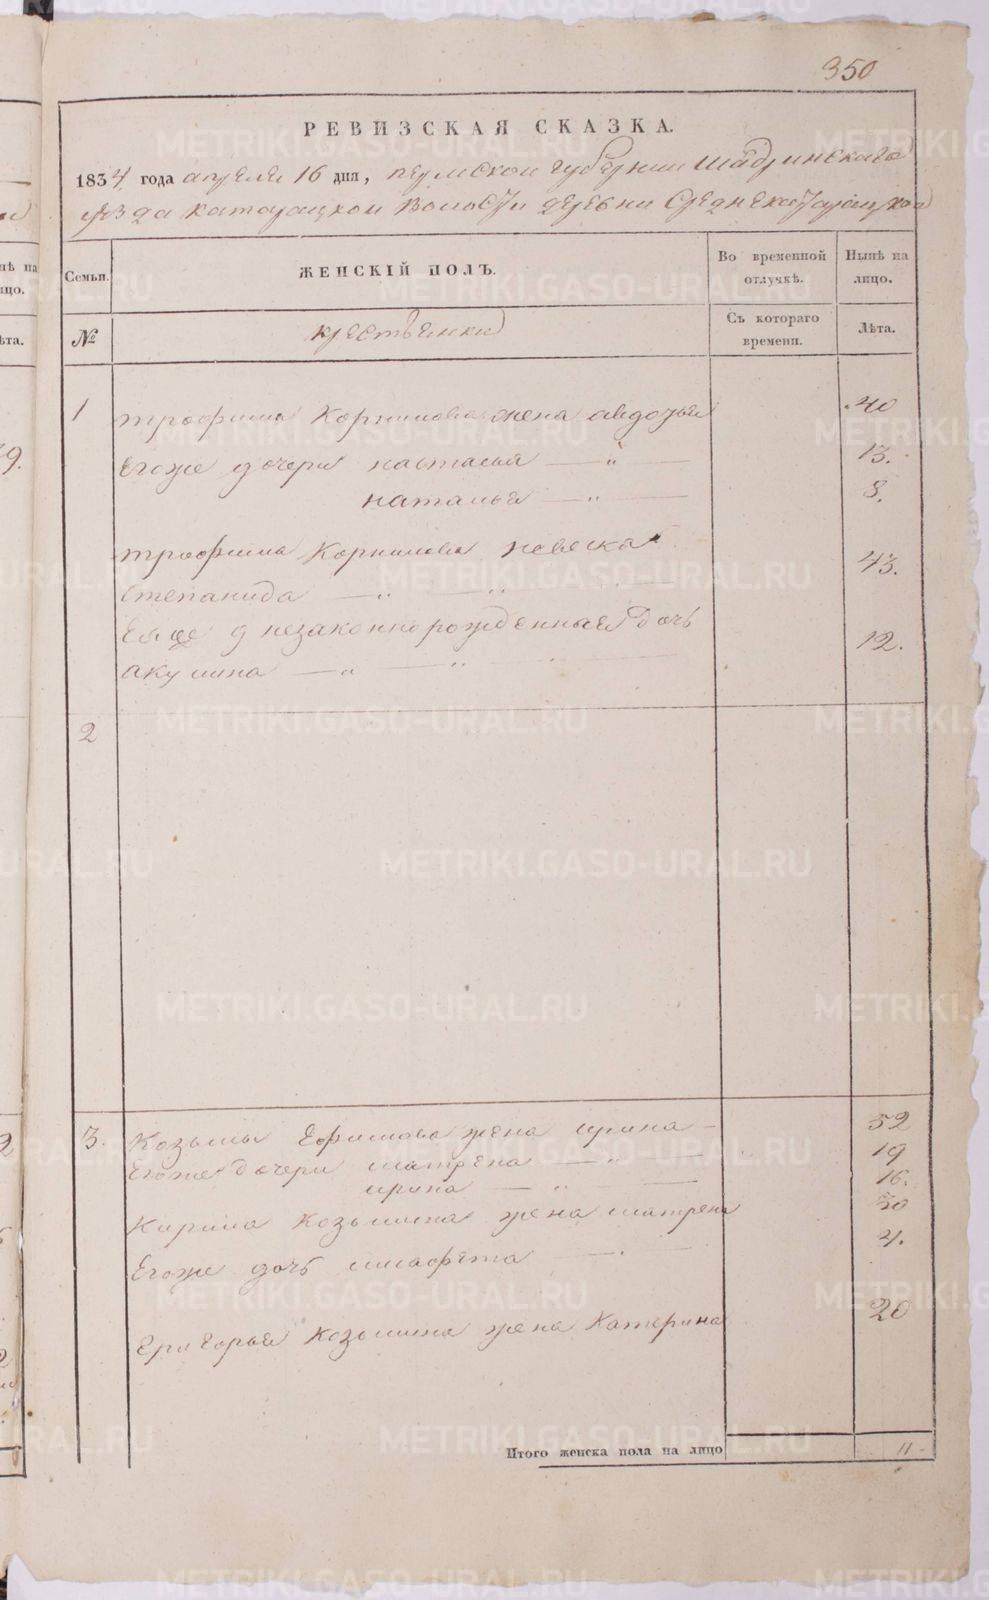 350
РЕВИЗСКАЯ СКАЗКА.
1834 года апреля 16 дня, пермской губернии Шадринскаго
уезда катайской волости деревни Среднекатайской
Семьи.
ЖЕНСКІЙ ПОЛЪ.
Во временной отлучкѣ.
Нынѣ на лицо.
№
крестьянки
Съ котораго времени.
Лѣта.
1 трофима Корнилова жена авдотья 40
Егоже дочери настасья — " — 13.
наталья — " — 8.
трофима Корнилова невеска
Степанида — " — " — 43.
Ея незаконнорожденная дочь
акулина — " — " — 12.
2
3. Козьмы Ефимова жена ирина — 52
Егоже дочери матрена — " — 19
ирина — " — 16.
Кирила Козьмина жена матрена 30
Егоже дочь 4.
Григорья Козьмина жена Катерина 20
Итого женска пола на лицо 11
METRIKI.GASO-URAL.RU